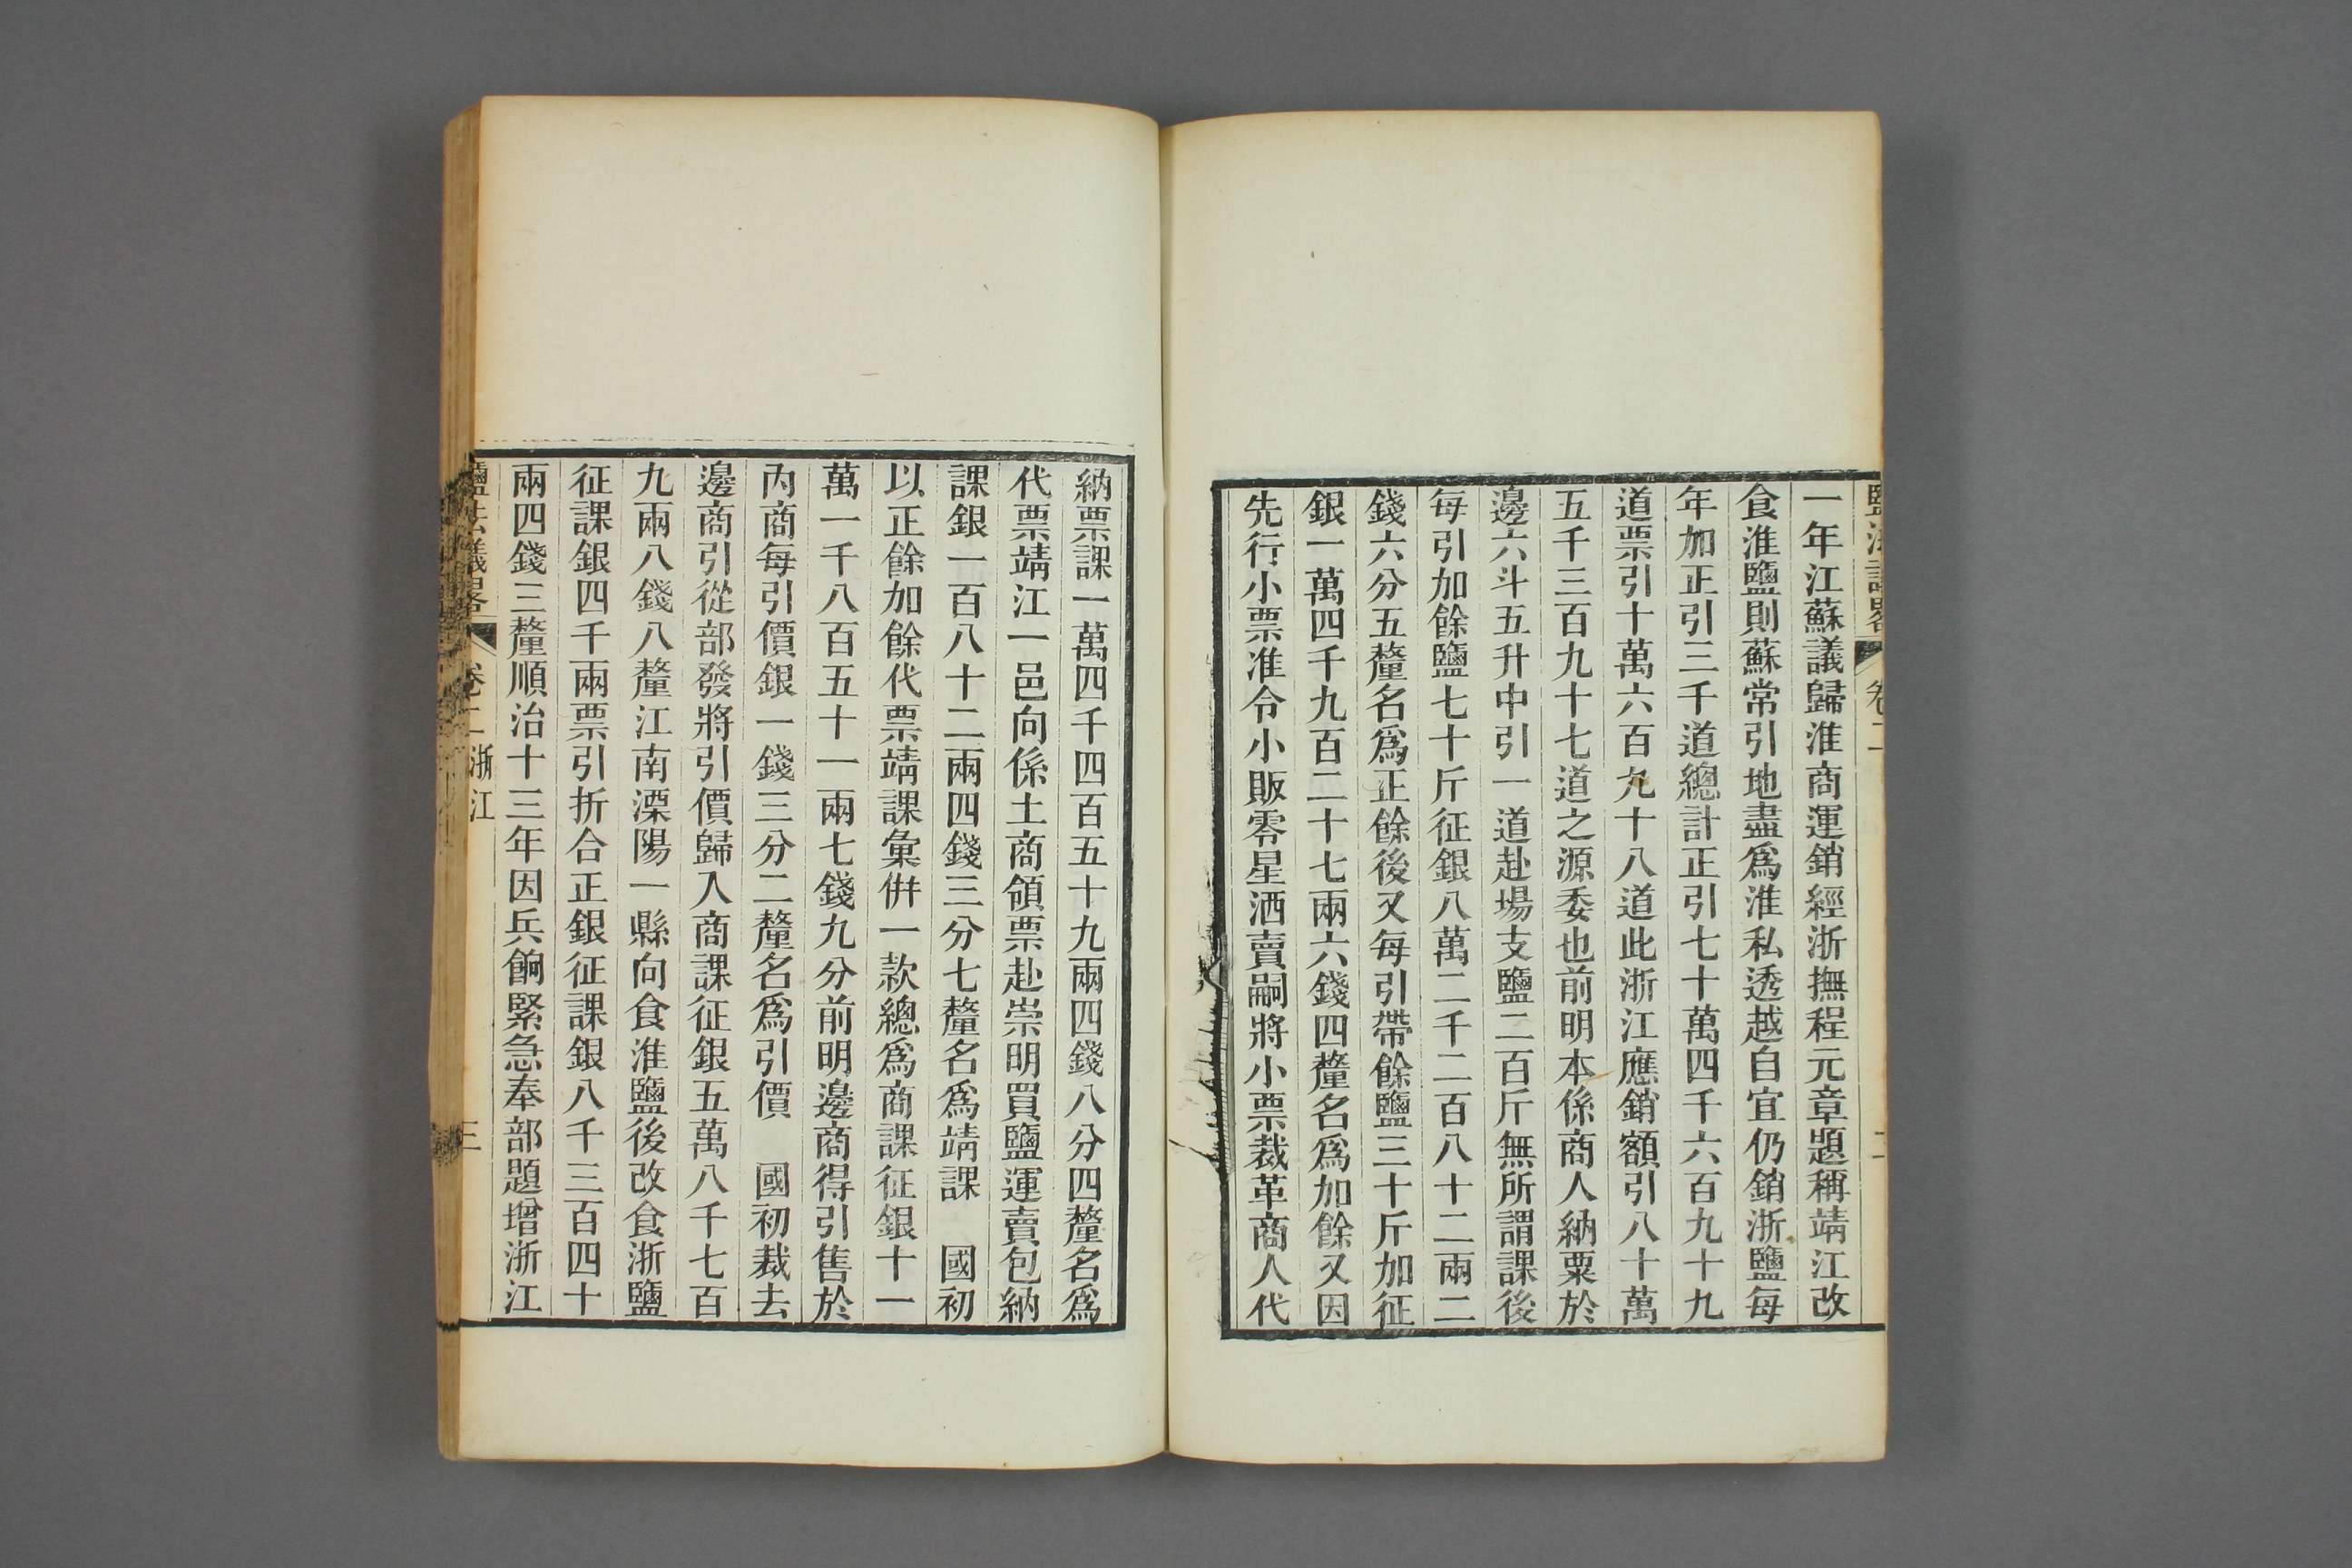 一年江蘇議歸淮商運銷經浙撫程元章題稱靖江改
食淮鹽則蘇常引地盡爲淮私透越自宜仍銷浙鹽每
年加正引三千道總計正引七十萬四千六百九十九
道票引十萬六百九十八道此浙江應銷額引八十萬
五千三百九十七道之源委也前明本係商人納粟於
邊六斗五升中引一道赴場支鹽二百斤無所謂課後
每引加餘鹽七十斤征銀八萬二千二百八十二兩二
錢六分五釐名爲正餘後又每引帶餘鹽三十斤加征
銀一萬四千九百二十七兩六錢四釐名爲加餘又因
先行小票准令小販零星洒賣嗣將小票裁革商人代
納票課一萬四千四百五十九兩四錢八分四釐名爲
代票靖江一邑向係土商領票赴崇明買鹽運賣包納
課銀一百八十二兩四錢三分七釐名爲靖課　國初
以正餘加餘代票靖課彙併一款總爲商課征銀十一
萬一千八百五十一兩七錢九分前明邊商得引售於
內商每引價銀一錢三分二釐名爲引價　國初裁去
邊商引從部發將引價歸入商課征銀五萬八千七百
九兩八錢八釐江南溧陽一縣向食淮鹽後改食浙鹽
征課銀四千兩票引折合正銀征課銀八千三百四十
兩四錢三釐順治十三年因兵餉緊急奉部題增浙江
鹽法議畧
卷二 浙江
三